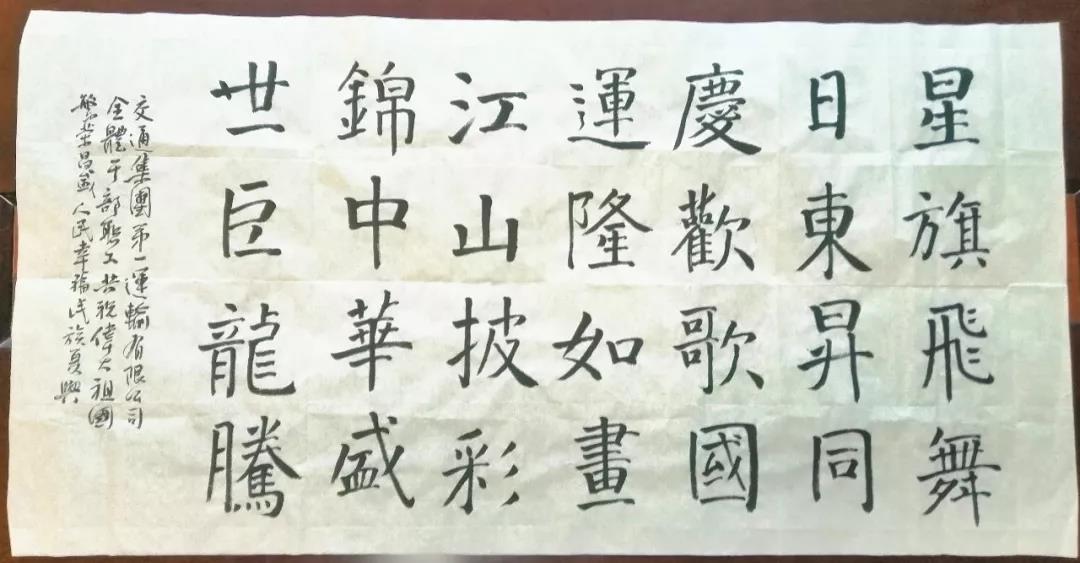 星旗飛舞
日東昇同
慶歡歌國
運隆如畫
江山披彩
錦中華盛
世巨龍騰
交通集團第一運輸有限公司
全體干部職工共祝偉大祖國
繁荣昌盛人民幸福民族复興